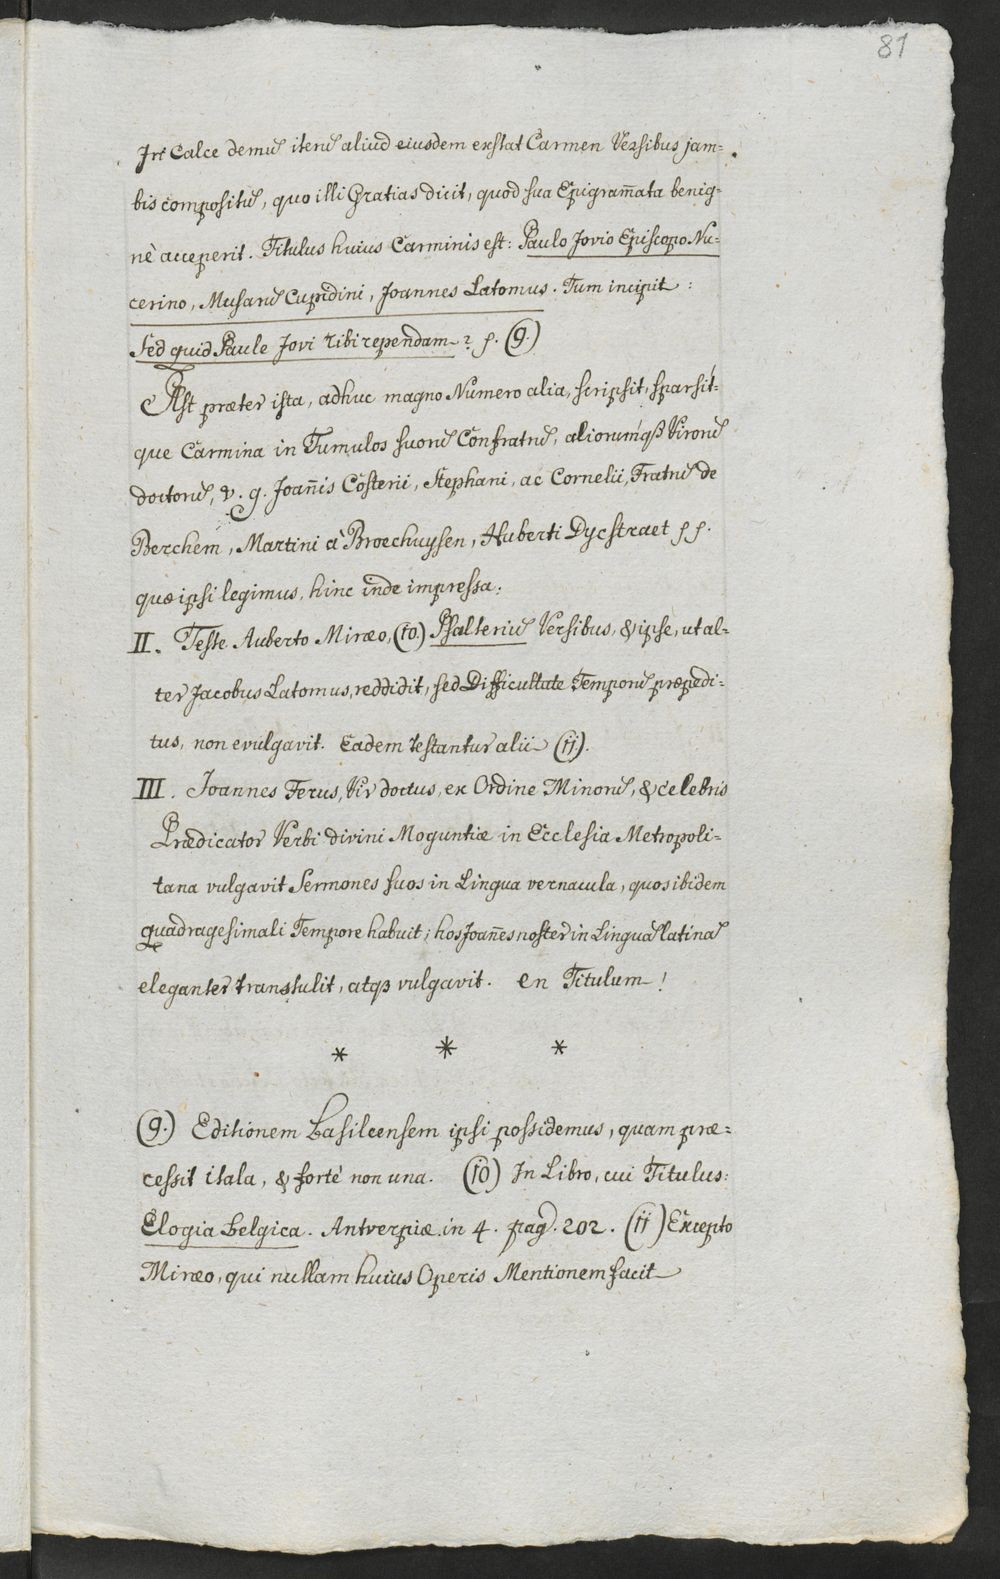 81
In Calce demũ iterũ aliud eiusdem exstat Carmen Versibus jam=
bis compositũ, quo illi Gratias dicit, quod sua Epigram̃ata benig=
nè acceperit. Titulus huius Carminis est: Paulo Jovio Episcopo Nu=
cerino, Musarũ Cupidini, Joannes Latomus. Tum incipit:
Sed quid Paule Jovi tibi rependam? p. (9.)
Ast præter ista, adhuc magno Numero alia, scripsit, sparsit=
que Carmina in Tumulos suorũ Confratrũ, aliorumqß Virorũ
doctorũ, v. g. Joañis Costerii, Stephani, ac Cornelii, Fratrũ de
Berchem, Martini à Broechuysen, Huberti Dycstraet pp.
quæ ipsi legimus, hinc inde impressa:
II. Teste Auberto Miræo, (10.) Psalteriũ Versibus, & ipse, ut al=
ter Jacobus Latomus, reddidit, sed Difficultate Temporũ præpedi=
tus, non evulgavit. Eadem testantur alii (11).
III. Joannes Ferus, Vir doctus, ex Ordine Minorũ, & celebris
Prædicator Verbi divini Moguntiæ in Ecclesia Metropoli=
tana vulgavit Sermones suos in Lingua vernacula, quos ibidem
quadragesimali Tempore habuit; hos Joañes noster in Linguã latinã
eleganter transtulit, atqß vulgavit. en Titulum!
* * *
(9.) Editionem Basileensem ipsi possidemus, quam præ=
cessit itala, & fortè non una. (10) In Libro, cui Titulus:
Elogia Belgica. Antverpiæ in 4. pag. 202. (11) Excepto
Miræo, qui nullam huius Operis Mentionem facit